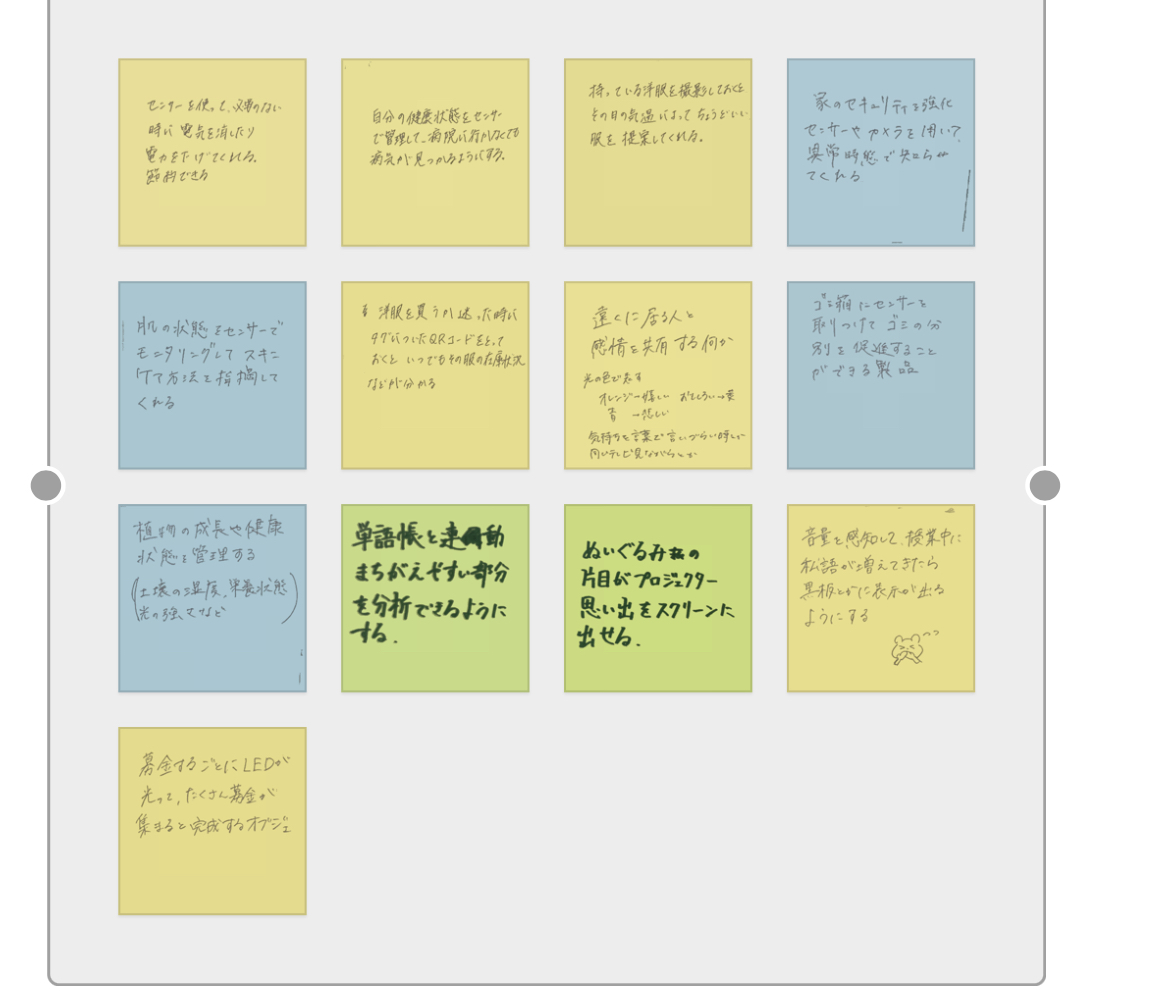 センサーを使って、必要のない
時に電気を消したり
電力を下げてくれる。
節約できる
自分の健康状態をセンサー
で管理して、病院に行かなくても
病気が見つかるようにする。
持っている洋服を撮影しておくと
その日の気温によってちょうどいい
服を提案してくれる。
家のセキュリティを強化
センサーやカメラを用い?
異常時態で知らせ
てくれる
肌の状態をセンサーで
モニタリングして スキン
ケア方法を指摘して
くれる
洋服を買うか迷った時に
タグについたQRコードをとって
おくと いつでもその服の在庫状況
などが分かる
遠くに居る人と
感情を共有する何か
光の色で表す
オレンジ→嬉しい おもしろい→黄
青 →悲しい
気持ちを言葉で言いづらい時とか
同じテレビ見ながらとか
ゴミ箱にセンサーを
取りつけて ゴミの分
別を促進すること
ができる製品
植物の成長や健康
状態を管理する
(土壌の湿度、栄養状態
光の強さなど)
単語帳と連動
まちがえやすい部分
を分析できるように
する.
ぬいぐるみの
片目がプロジェクター
思い出をスクリーンに
出せる.
音量を感知して、授業中に
私語が増えてきたら
黒板とかに表示が出る
ようにする
募金するごとにLEDが
光って,たくさん募金が
集まると完成するオブジェ